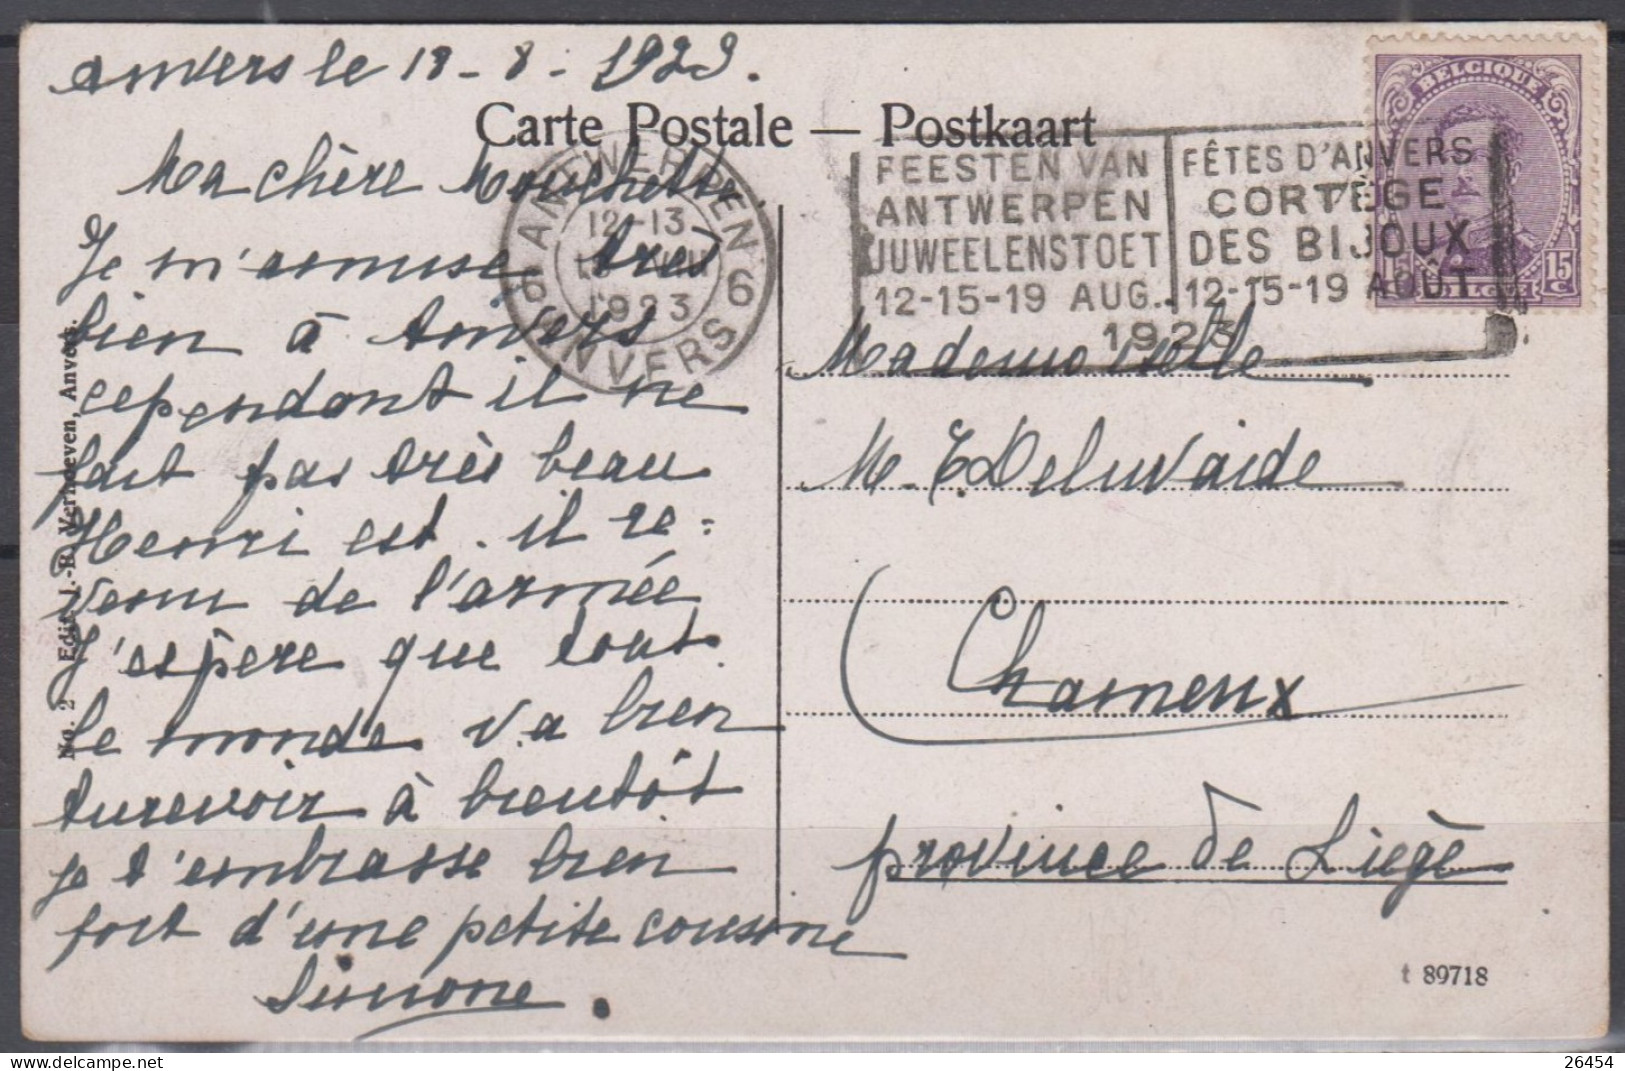 Anvers le 18-8-1923.
Carte Postale — Postkaart
Ma chère Mouchette.
Je m'amuse tres
bien à Anvers
cependant il ne
fait pas très beau
Henri est-il re-
venu de l'armée
J'espère que tout
le monde va bien
Aurevoir à bientôt
je t'embrasse bien
fort d'une petite cousine
Simone.
ANTWERPEN
12-13
1923
6 6
ANVERS
FEESTEN VAN
ANTWERPEN
JUWEELENSTOET
12-15-19 AUG.
FÊTES D'ANVERS
CORTÈGE
DES BIJOUX
12-15-19 AOÛT
1923
BELGIQUE
15 15
C C
BELGIË
Mademoiselle
M. T. Deluvaide
Charneux
province de Liège
No. 2 Edit. J.-B. Verhoeven, Anvers.
t 89718
26454